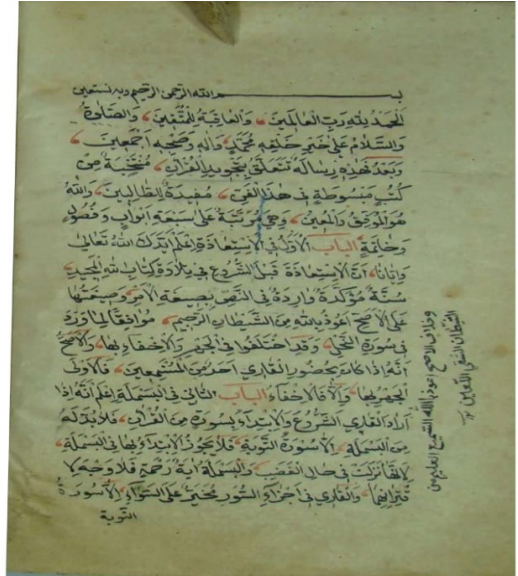 بسم الله الرحمن الرحيم وبه نستعين
الحمد لله رب العالمين والعاقبة للمتقين والصلوة
والسلام على خير خلقه محمد واله وصحبه اجمعين
وبعد فهذه رسالة تتعلق بتجويد القرآن منتخبة من
كتب مبسوطة في هذا الفن مفيدة للطالبين والله
هو الموفق والمعين وهي مرتبة على سبعة ابواب وفصول
وخاتمة الباب الاول في الاستعاذة اعلم ايدك الله تعالى
وايانا ان الاستعاذة قبل الشروع في تلاوة كتاب الله المجيد
سنة مؤكدة واردة في النص بصيغة الامر وصيغتها
على الاصح اعوذ بالله من الشيطان الرجيم موافقا لما ورد
في سورة النحل وقد اختلفوا في الجهر والاخفاء بها والاصح
انه اذا كان بحضور القارئ احد من المستمعين فالاولى
الجهر بها والا فالاخفاء الباب الثاني في البسملة اعلم انه اذا
اراد القارئ الشروع والابتداء بسورة من القرآن فلا بد له
من البسملة الا سورة التوبة فلا يجوز الابتداء بها في البسملة
لانها نزلت في حال الغضب والبسملة آية رحمة فلا وجه لا
قترانهما والقارئ في اجزاء السور مخير على السواء الا سورة
التوبة
وخلاف الاصح اعوذ بالله السميع العليم من
الشيطان